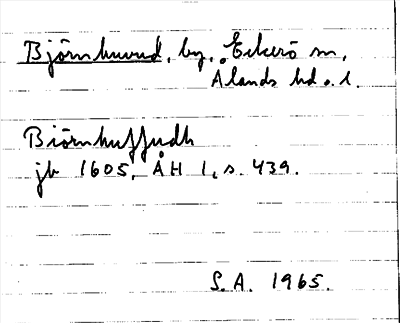 Björnhuvud, by, Eckerö sn,
Ålands hd o. l.
Biörnhuffudh
jb 1605, ÅH 1, s. 439.
S.A. 1965.